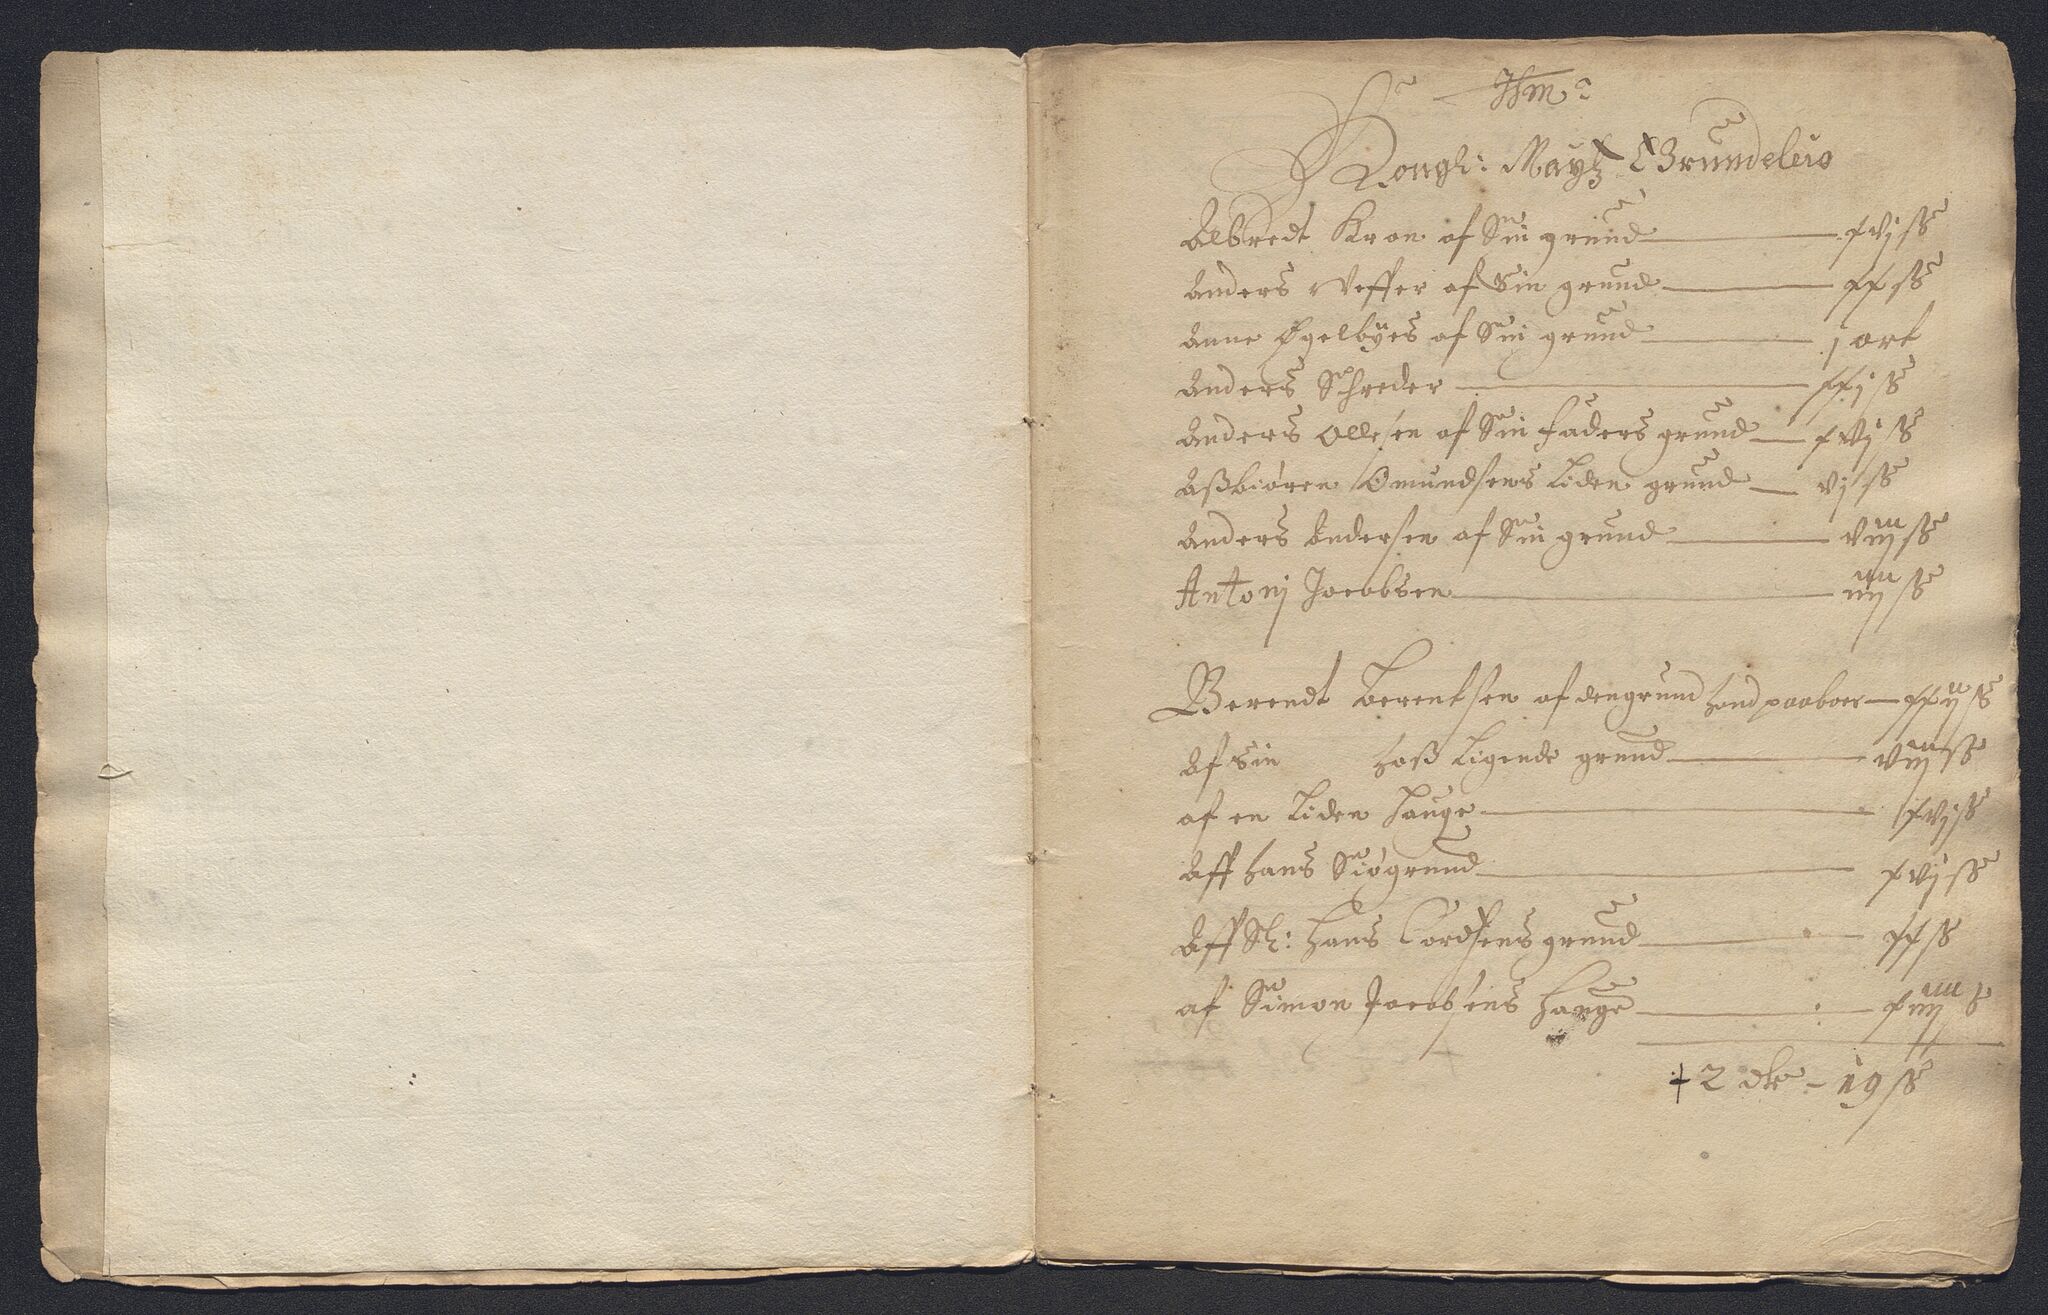 Kongl: Maytz Grundeleÿe
Albredt Kron af Sin grund xvj ß
Anders Veffer af Sin grund xx ß
Anne Øgelbÿes af Sin grund j ort
Anders Schreder xxj ß
Anders Ollesen af Sin faders grund xvj ß
Aßbiøren Omundsens Liden grund vj ß
Anders Andersen af Sin grund viij ß
Antonj Jacobsen iiij ß
Berendt Berentsen af den grund hand paaboer xxij ß
Af Sin hoß Ligende grund viij ß
af en Liden Hauge xvj ß
Aff hans Siøgrund xvj ß
Aff Sl: Hans Cordsens grund xx ß
af Simon Jacobsens Hauge xiiij ß
2 dlr - 19 ß